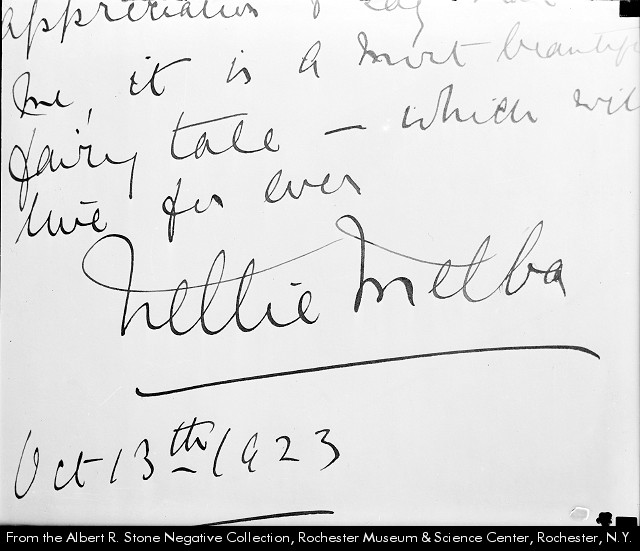 appreciation
me, it is a most beautiful
fairy tale — which will
live for ever
Nellie Melba
Oct 13th 1923
From the Albert R. Stone Negative Collection, Rochester Museum & Science Center, Rochester, N.Y.